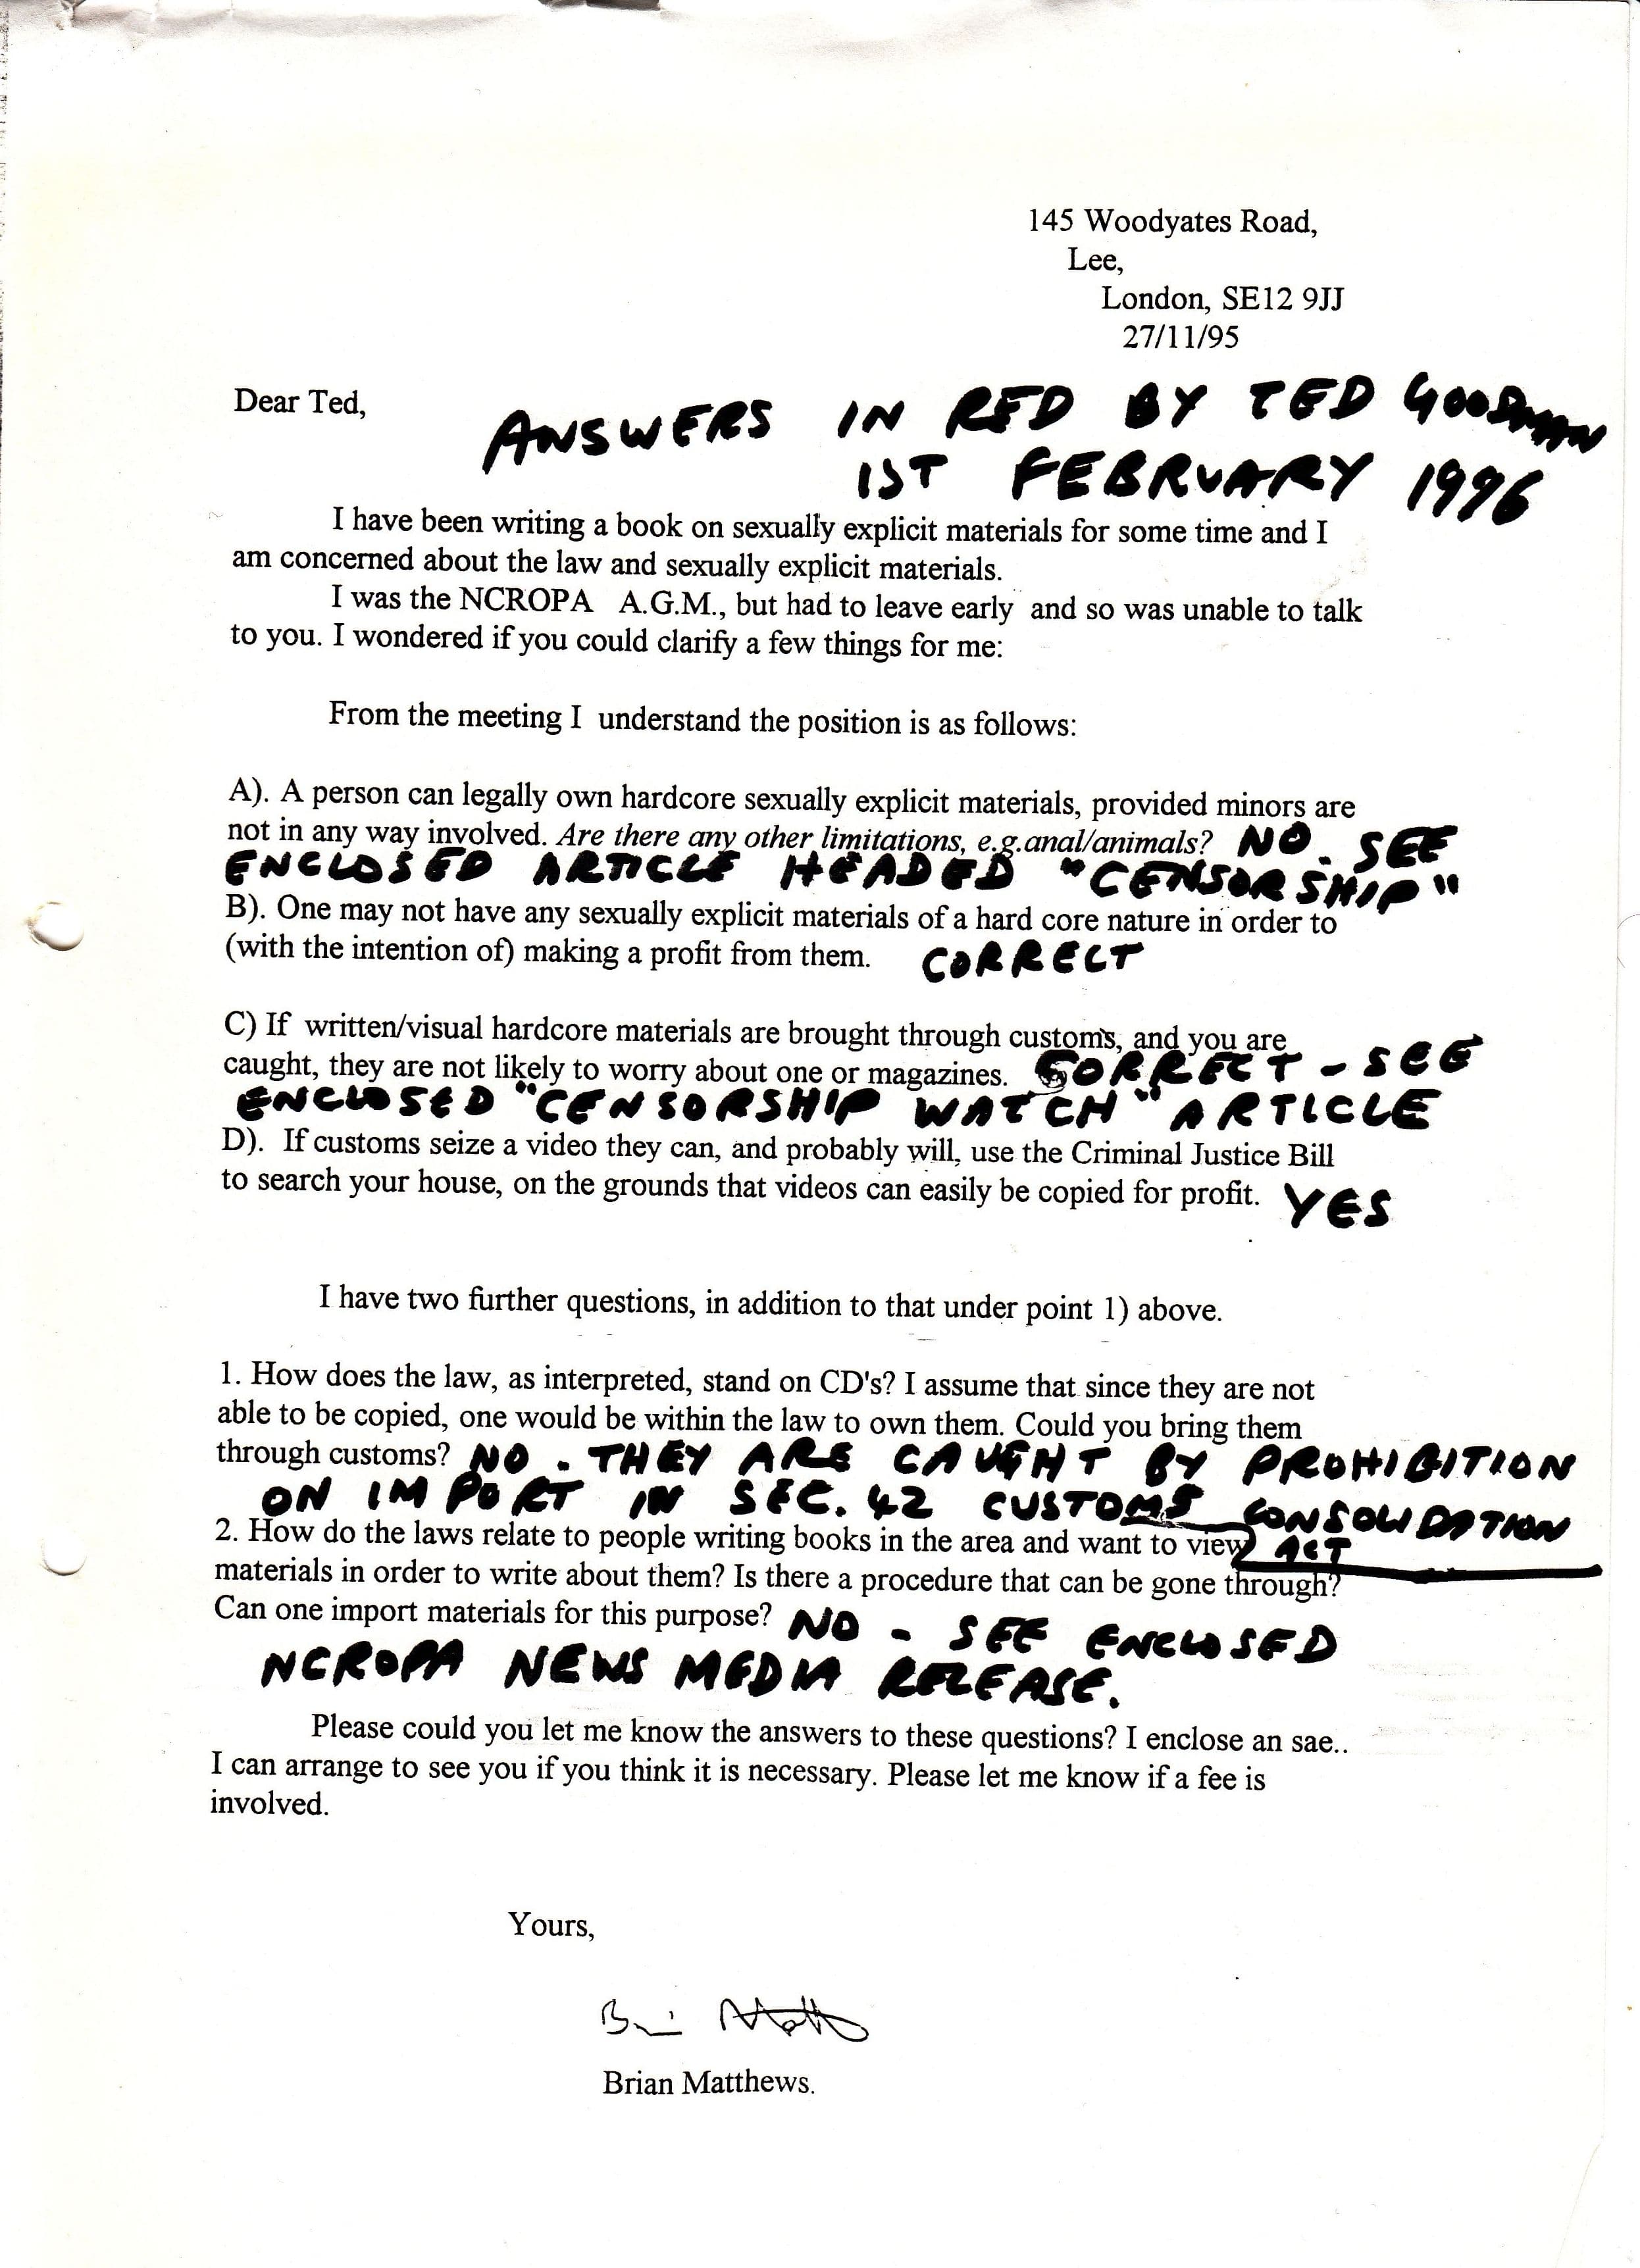 145 Woodyates Road,
Lee,
London, SE12 9JJ
27/11/95
Dear Ted,
ANSWERS IN RED BY TED GOODMAN
1ST FEBRUARY 1996
I have been writing a book on sexually explicit materials for some time and I
am concerned about the law and sexually explicit materials.
I was the NCROPA A.G.M., but had to leave early and so was unable to talk
to you. I wondered if you could clarify a few things for me:
From the meeting I understand the position is as follows:
A). A person can legally own hardcore sexually explicit materials, provided minors are
not in any way involved. Are there any other limitations, e.g.anal/animals? NO. SEE
ENCLOSED ARTICLE HEADED "CENSORSHIP"
B). One may not have any sexually explicit materials of a hard core nature in order to
(with the intention of) making a profit from them. CORRECT
C) If written/visual hardcore materials are brought through customs, and you are
caught, they are not likely to worry about one or magazines. CORRECT - SEE
ENCLOSED "CENSORSHIP WATCH" ARTICLE
D). If customs seize a video they can, and probably will, use the Criminal Justice Bill
to search your house, on the grounds that videos can easily be copied for profit. YES
I have two further questions, in addition to that under point 1) above.
1. How does the law, as interpreted, stand on CD's? I assume that since they are not
able to be copied, one would be within the law to own them. Could you bring them
through customs? NO. THEY ARE CAUGHT BY PROHIBITION
ON IMPORT IN SEC. 42 CUSTOMS CONSOLIDATION
2. How do the laws relate to people writing books in the area and want to view ACT
materials in order to write about them? Is there a procedure that can be gone through?
Can one import materials for this purpose? NO - SEE ENCLOSED
NCROPA NEWS MEDIA RELEASE.
Please could you let me know the answers to these questions? I enclose an sae..
I can arrange to see you if you think it is necessary. Please let me know if a fee is
involved.
Yours,
Brian Matthews.